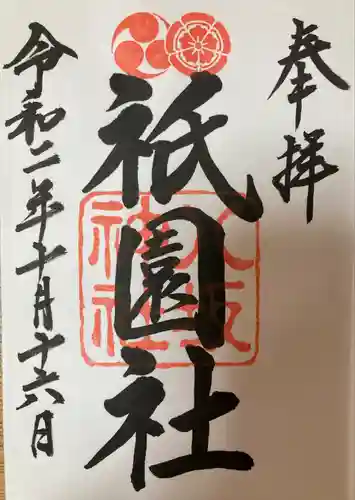 奉拝
祇園社
八坂神社
令和二年十月十六月